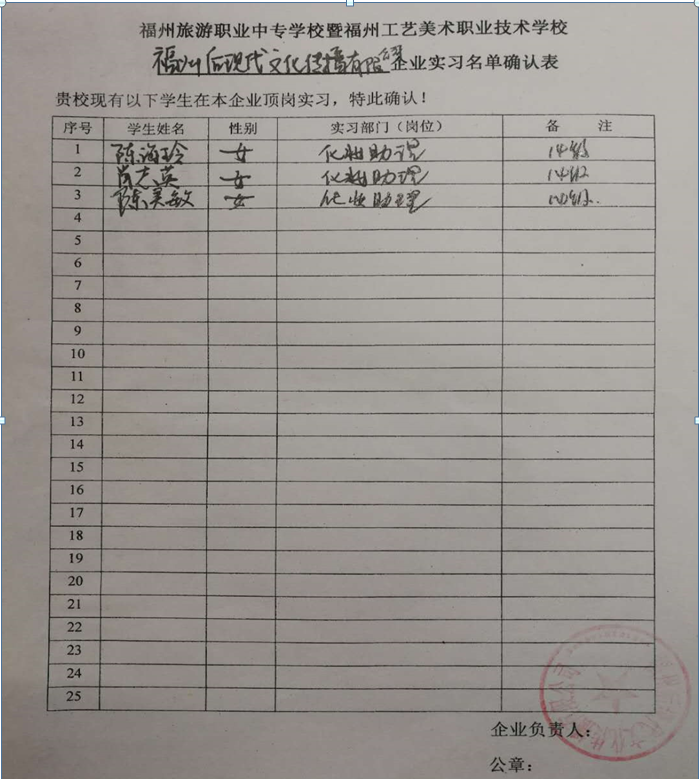 福州旅游职业中专学校暨福州工艺美术职业技术学校
福州后现代文化传播有限公司企业实习名单确认表
贵校现有以下学生在本企业顶岗实习，特此确认！
序号 学生姓名 性别 实习部门（岗位） 备 注
1 陈海玲 女 化妆助理 14级
2 肖志英 女 化妆助理 14级
3 陈美敏 女 化妆助理 14级.
4
5
6
7
8
9
10
11
12
13
14
15
16
17
18
19
20
21
22
23
24
25
企业负责人：
公章：